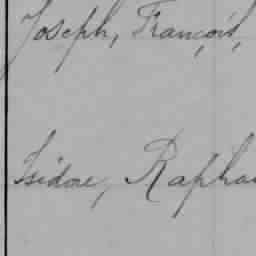 Joseph, François,
Isidore, Rapha